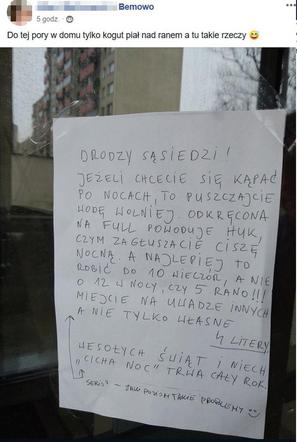 Bemowo
5 godz.
Do tej pory w domu tylko kogut piał nad ranem a tu takie rzeczy 😄
DRODZY SĄSIEDZI!
JEŻELI CHCECIE SIĘ KĄPAĆ
PO NOCACH, TO PUSZCZAJCIE
WODĘ WOLNIEJ. ODKRĘCONA
NA FULL POWODUJE HUK,
CZYM ZAGŁUSZACIE CISZĘ
NOCNĄ. A NAJLEPIEJ TO
ROBIĆ DO 10 WIECZÓR, A NIE
O 12 W NOCY, CZY 5 RANO!!!
MIEJCIE NA UWADZE INNYCH
A NIE TYLKO WŁASNE
4 LITERY.
WESOŁYCH ŚWIĄT I NIECH
„CICHA NOC" TRWA CAŁY ROK.
TAKIE PROBLEMY